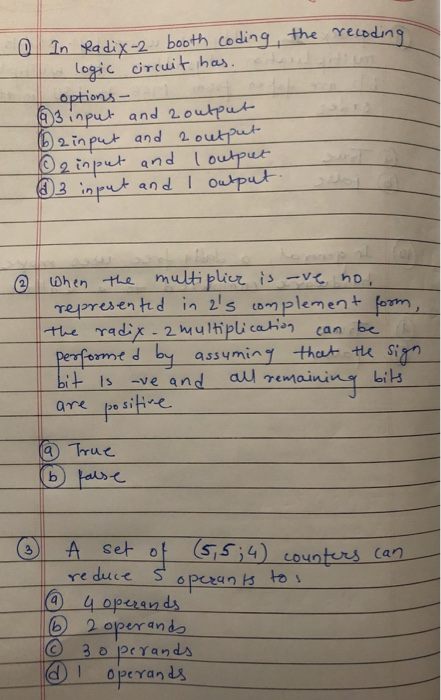 ① In Radix-2 booth coding, the recoding
logic circuit has.
options -
ⓐ 3 input and 2 output
ⓑ 2 input and 2 output
ⓒ 2 input and 1 output
ⓓ 3 input and 1 output.
② When the multiplier is -ve no.
represented in 2's complement form,
the radix-2 multiplication can be
performed by assuming that the sign
bit is -ve and all remaining bits
are positive
ⓐ True
ⓑ false
③ A set of (5,5;4) counters can
reduce 5 operants to:
ⓐ 4 operands
ⓑ 2 operands
ⓒ 3 operands
ⓓ 1 operands